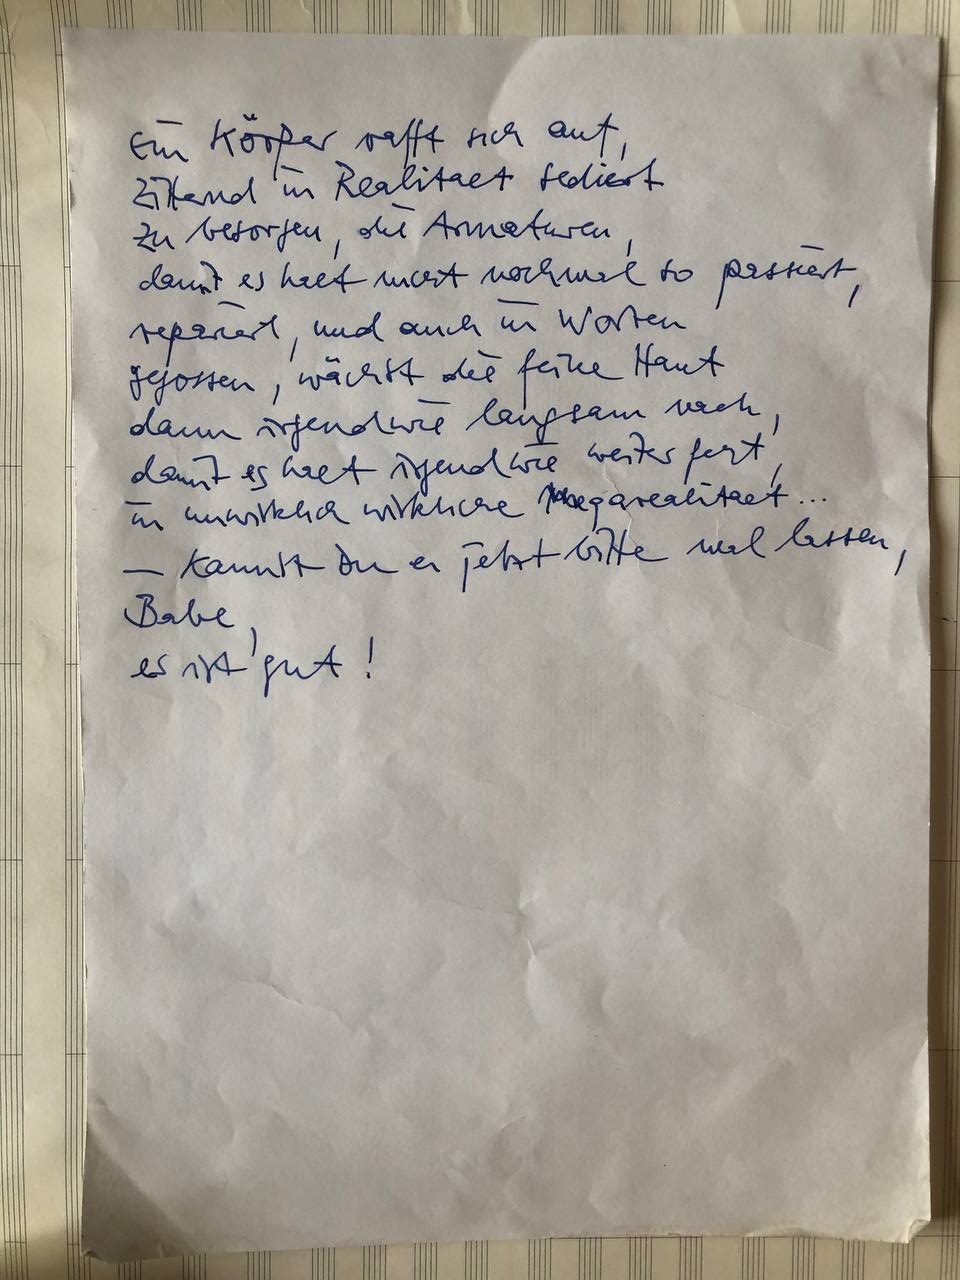 Ein Körper rafft sich auf,
zitternd in Realitaet sediert
zu besorgen, die Armaturen,
damit es halt nicht nochmal so passiert,
repariert, und auch in Worten
gegossen, wächst die feine Haut
dann irgendwie langsam nach,
damit es halt irgendwie weiter geht,
in unwirklich wirkliche Megarealitaet...
— Kannst Du es jetzt bitte mal lassen,
Babe,
es ist gut!